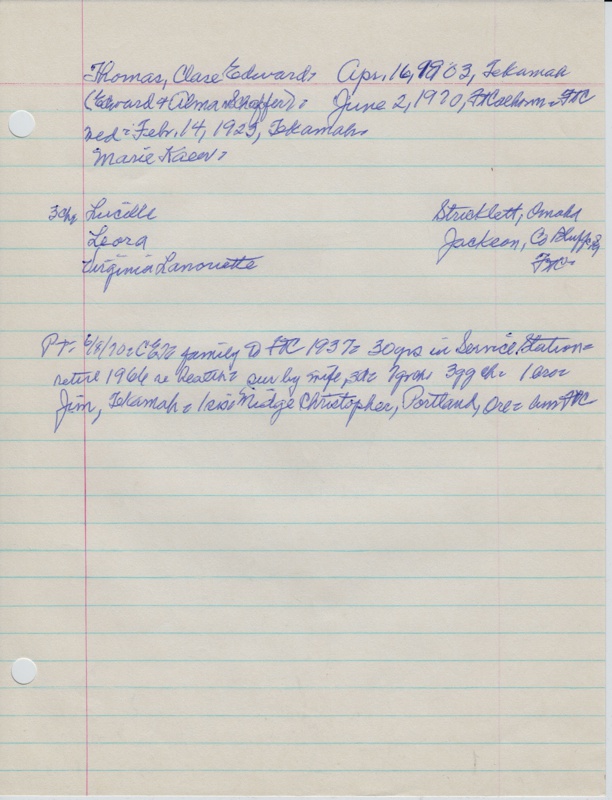 Thomas, Clare Edward= Apr. 16, 1903, Tekamah
(Edward + Alma Shaffer)= June 2, 1970, Ft Calhoun= FtC
wed= Febr. 14, 1923, Tekamah=
Marie Kaer=
3 ch= Lucille Stricklett, Omaha
Leora Jackson, Co Bluffs,
Virginia Lanouette FtC=
PT= 6/8/70= C E T= family to FtC 1937= 30yrs in Service Station=
retire 1966 re health= sur by wife, 3d= 3ggch= 1 bro=
Jim, Tekamah= 1 sis= Midge Christopher, Portland, Ore= FtC